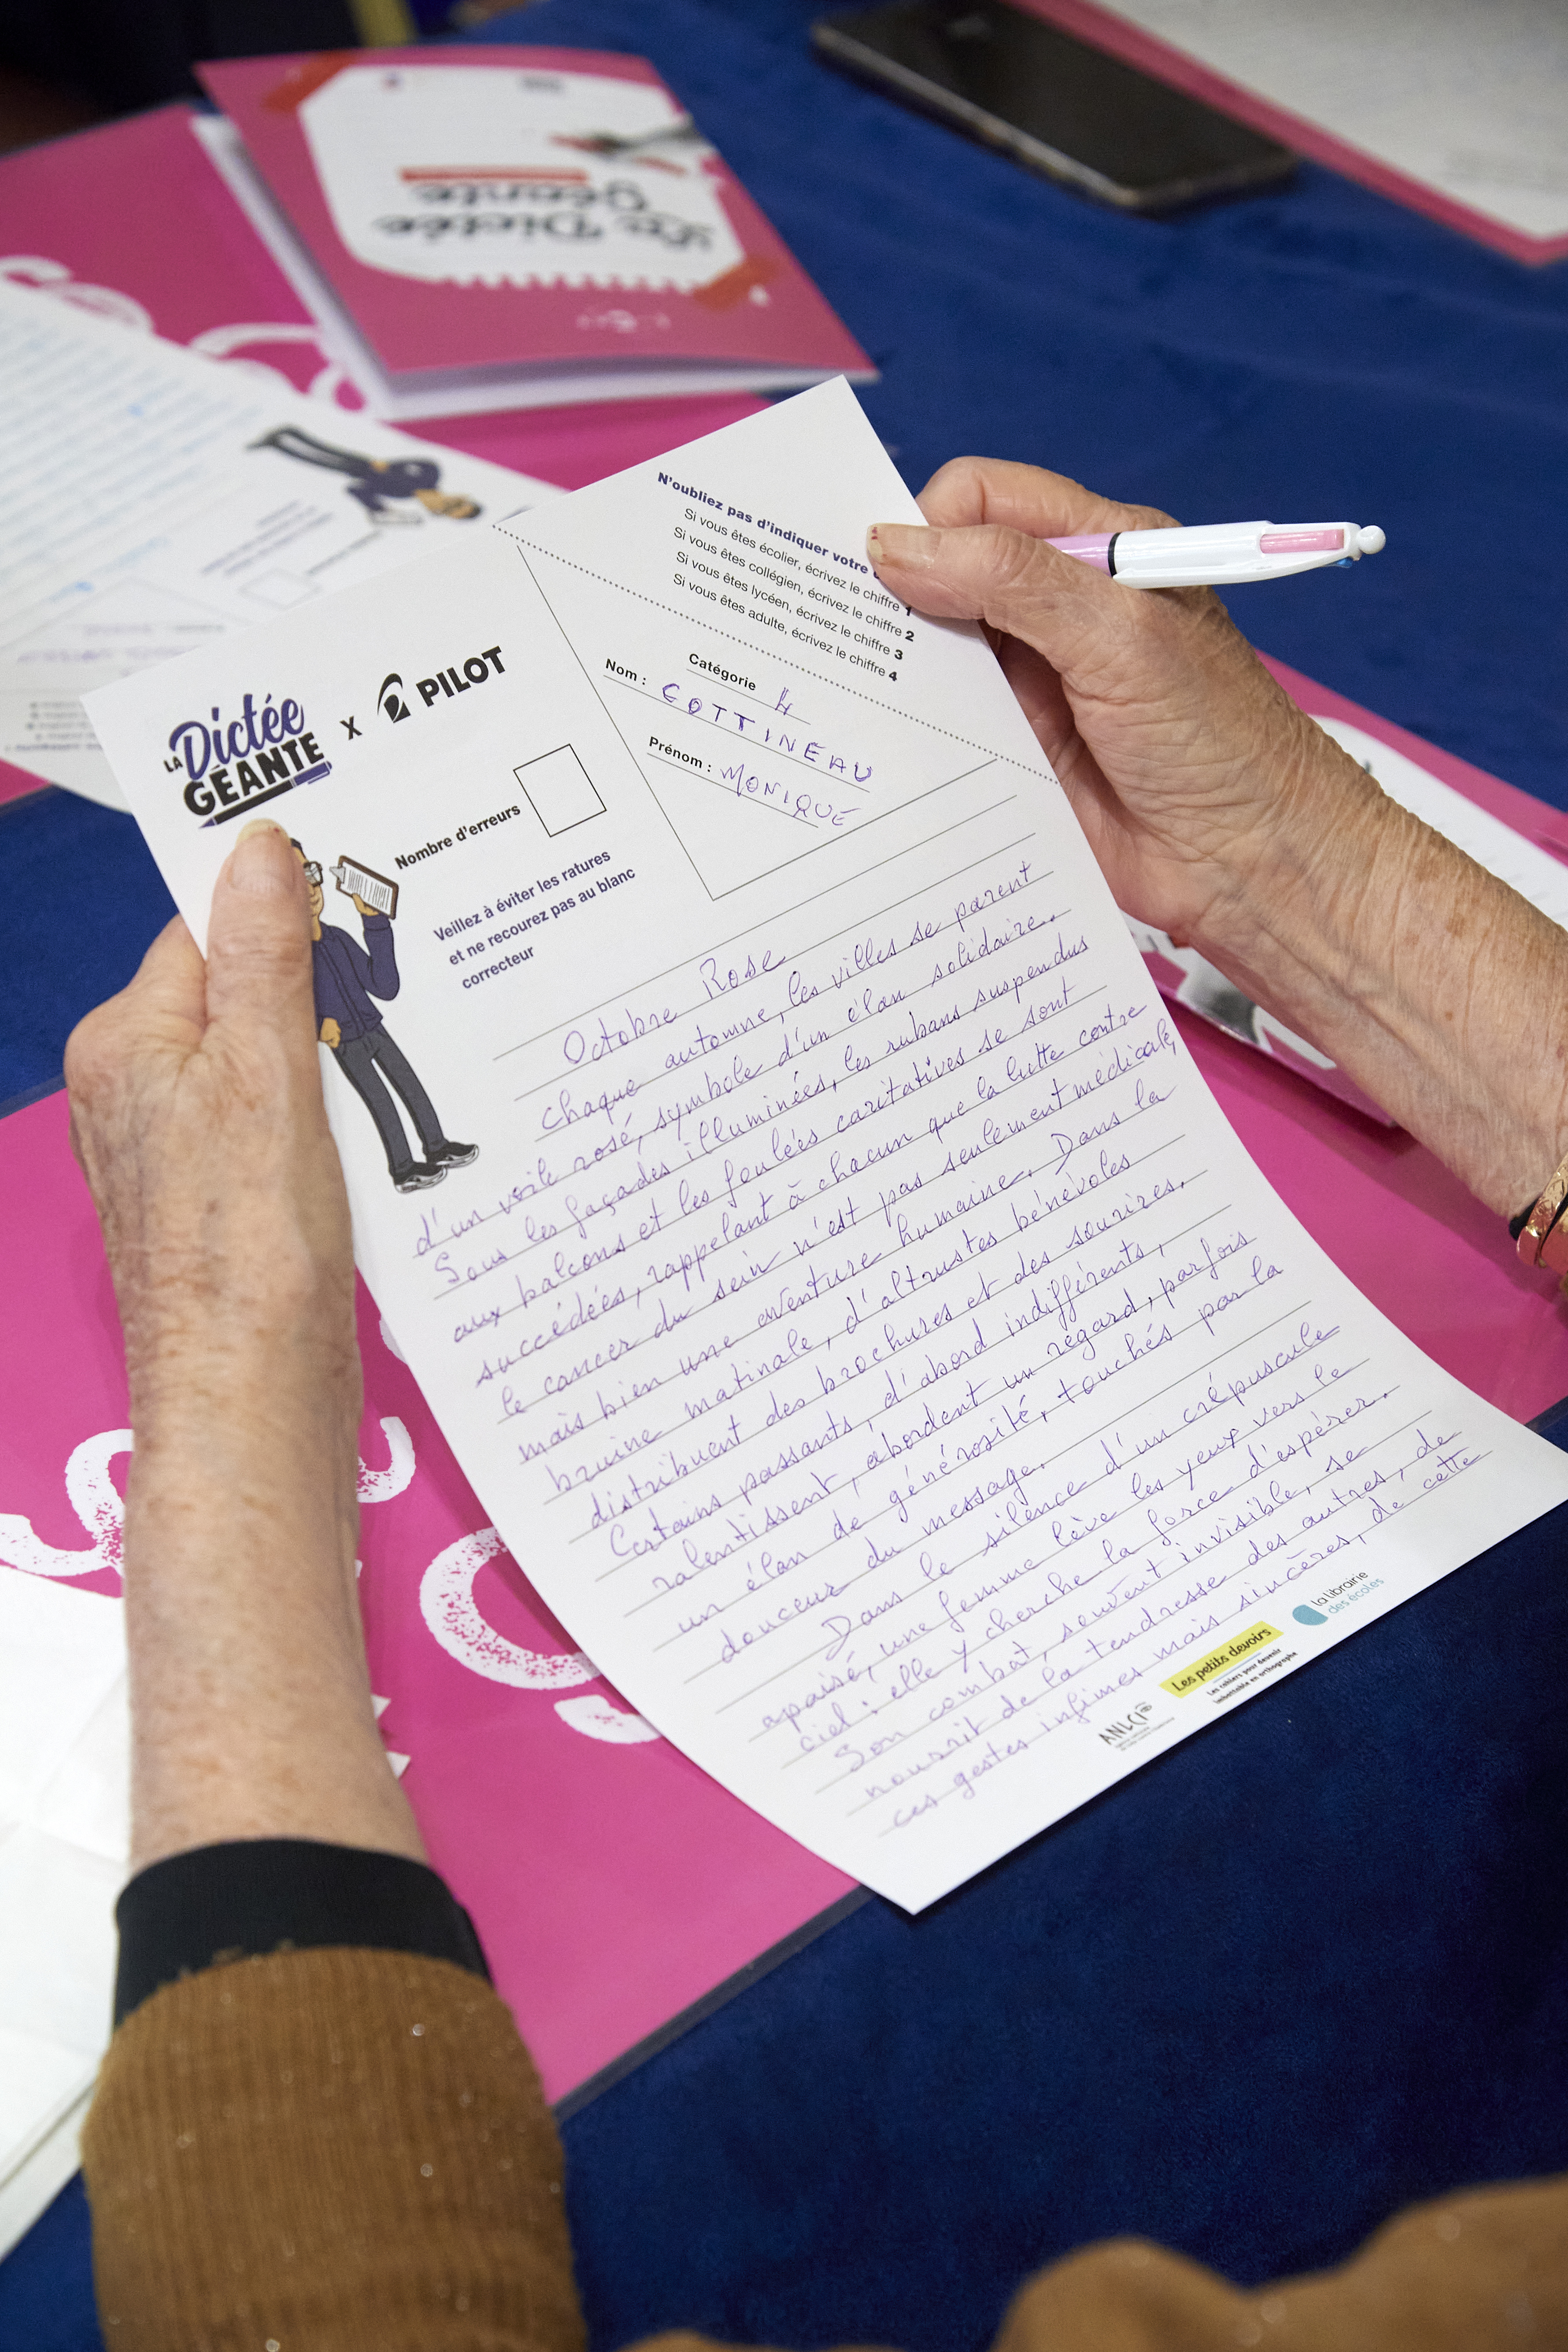 La Dictée
Géante
LA
Dictée
GÉANTE
x
PILOT
N'oubliez pas d'indiquer votre
Si vous êtes écolier, écrivez le chiffre 1
Si vous êtes collégien, écrivez le chiffre 2
Si vous êtes lycéen, écrivez le chiffre 3
Si vous êtes adulte, écrivez le chiffre 4
Catégorie 4
Nom : COTTINEAU
Prénom : MONIQUE
Nombre d'erreurs
Veillez à éviter les ratures
et ne recourez pas au blanc
correcteur
Octobre Rose
Chaque automne, les villes se parent
d'un voile rosé, symbole d'un élan solidaire.
Sous les façades illuminées, les rubans suspendus
aux balcons et les foulées caritatives se sont
succédées, rappelant à chacun que la lutte contre
le cancer du sein n'est pas seulement médicale,
mais bien une aventure humaine. Dans la
bruine matinale, d'altrustes bénévoles
distribuent des brochures et des sourires.
Certains passants, d'abord indifférents,
ralentissent, abordent un regard, parfois
un élan de générosité, touchés par la
douceur du message.
Dans le silence d'un crépuscule
apaisé, une femme lève les yeux vers le
ciel : elle y cherche la force d'espérer.
Son combat, souvent invisible, se
nourrit de la tendresse des autres, de
ces gestes infimes mais sincères, de cette
ANLCI
Les petits devoirs
Les cahiers pour devenir
imbattable en orthographe
la librairie
des écoles